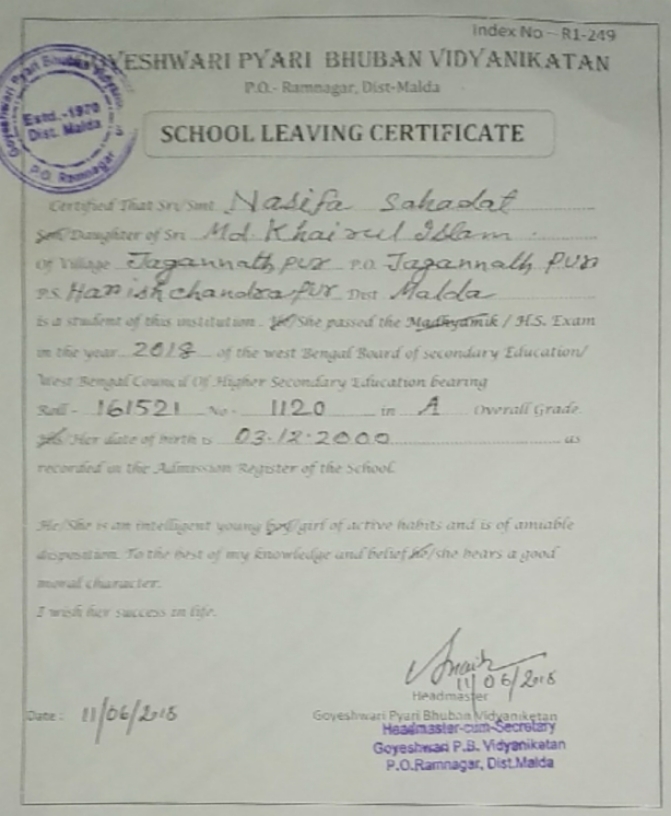 Index No - R1-249
GOYESHWARI PYARI BHUBAN VIDYANIKATAN
P.O.- Ramnagar, Dist-Malda
Goyeshwari Pyari Bhuban Vidyaniketan
Estd.-1970
Dist. Malda
P.O. Ramnagar
SCHOOL LEAVING CERTIFICATE
Certified That Sri/Smt Nasifa Sahadat
Son/Daughter of Sri Md. Khairul Islam
Of Village Jagannathpur P.O. Jagannathpur
P.S. Harishchandrapur Dist Malda
is a student of this institution. He/She passed the Madhyamik / H.S. Exam
in the year 2018 of the west Bengal Board of secondary Education/
West Bengal Council Of Higher Secondary Education bearing
Roll - 161521 No - 1120 in A Overall Grade.
His/Her date of birth is 03.12.2000 as
recorded in the Admission Register of the School.
He/She is an intelligent young boy/girl of active habits and is of amiable
disposition. To the best of my knowledge and belief he/she bears a good
moral character.
I wish her success in life.
11/06/2018
Headmaster
Date : 11/06/2018
Goyeshwari Pyari Bhuban Vidyaniketan
Headmaster-cum-Secretary
Goyeshwari P.B. Vidyaniketan
P.O.Ramnagar, Dist.Malda